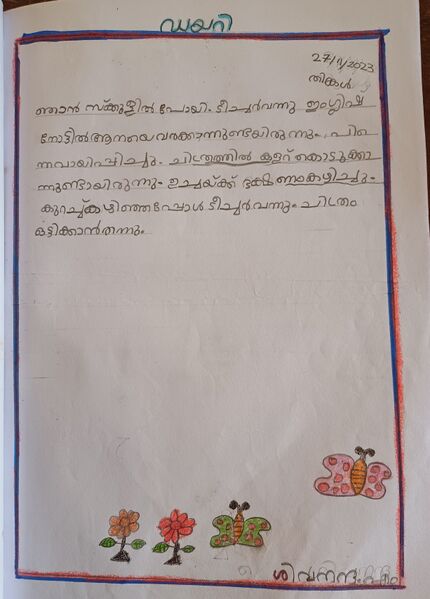 ഡയറി
27/11/2023
തിങ്കൾ
ഞാൻ സ്ക്കൂളിൽ പോയി. ടീച്ചർവന്നു ഇംഗ്ലീഷ്
നോട്ടിൽ ആനയെ വരക്കാനുണ്ടയിരുന്നു. പിന്നെ
ന്നവായിപ്പിച്ചു. ചിത്രത്തിൽ കളറ് കൊടുക്കാ
ന്നുണ്ടായിരുന്നു. ഉച്ചയ്ക്ക് ഭക്ഷണംകഴിച്ചു.
കുറച്ച്കഴിഞ്ഞപ്പോൾ ടീച്ചർ വന്നു. ചിത്രം
ഒട്ടിക്കാൻതന്നു.